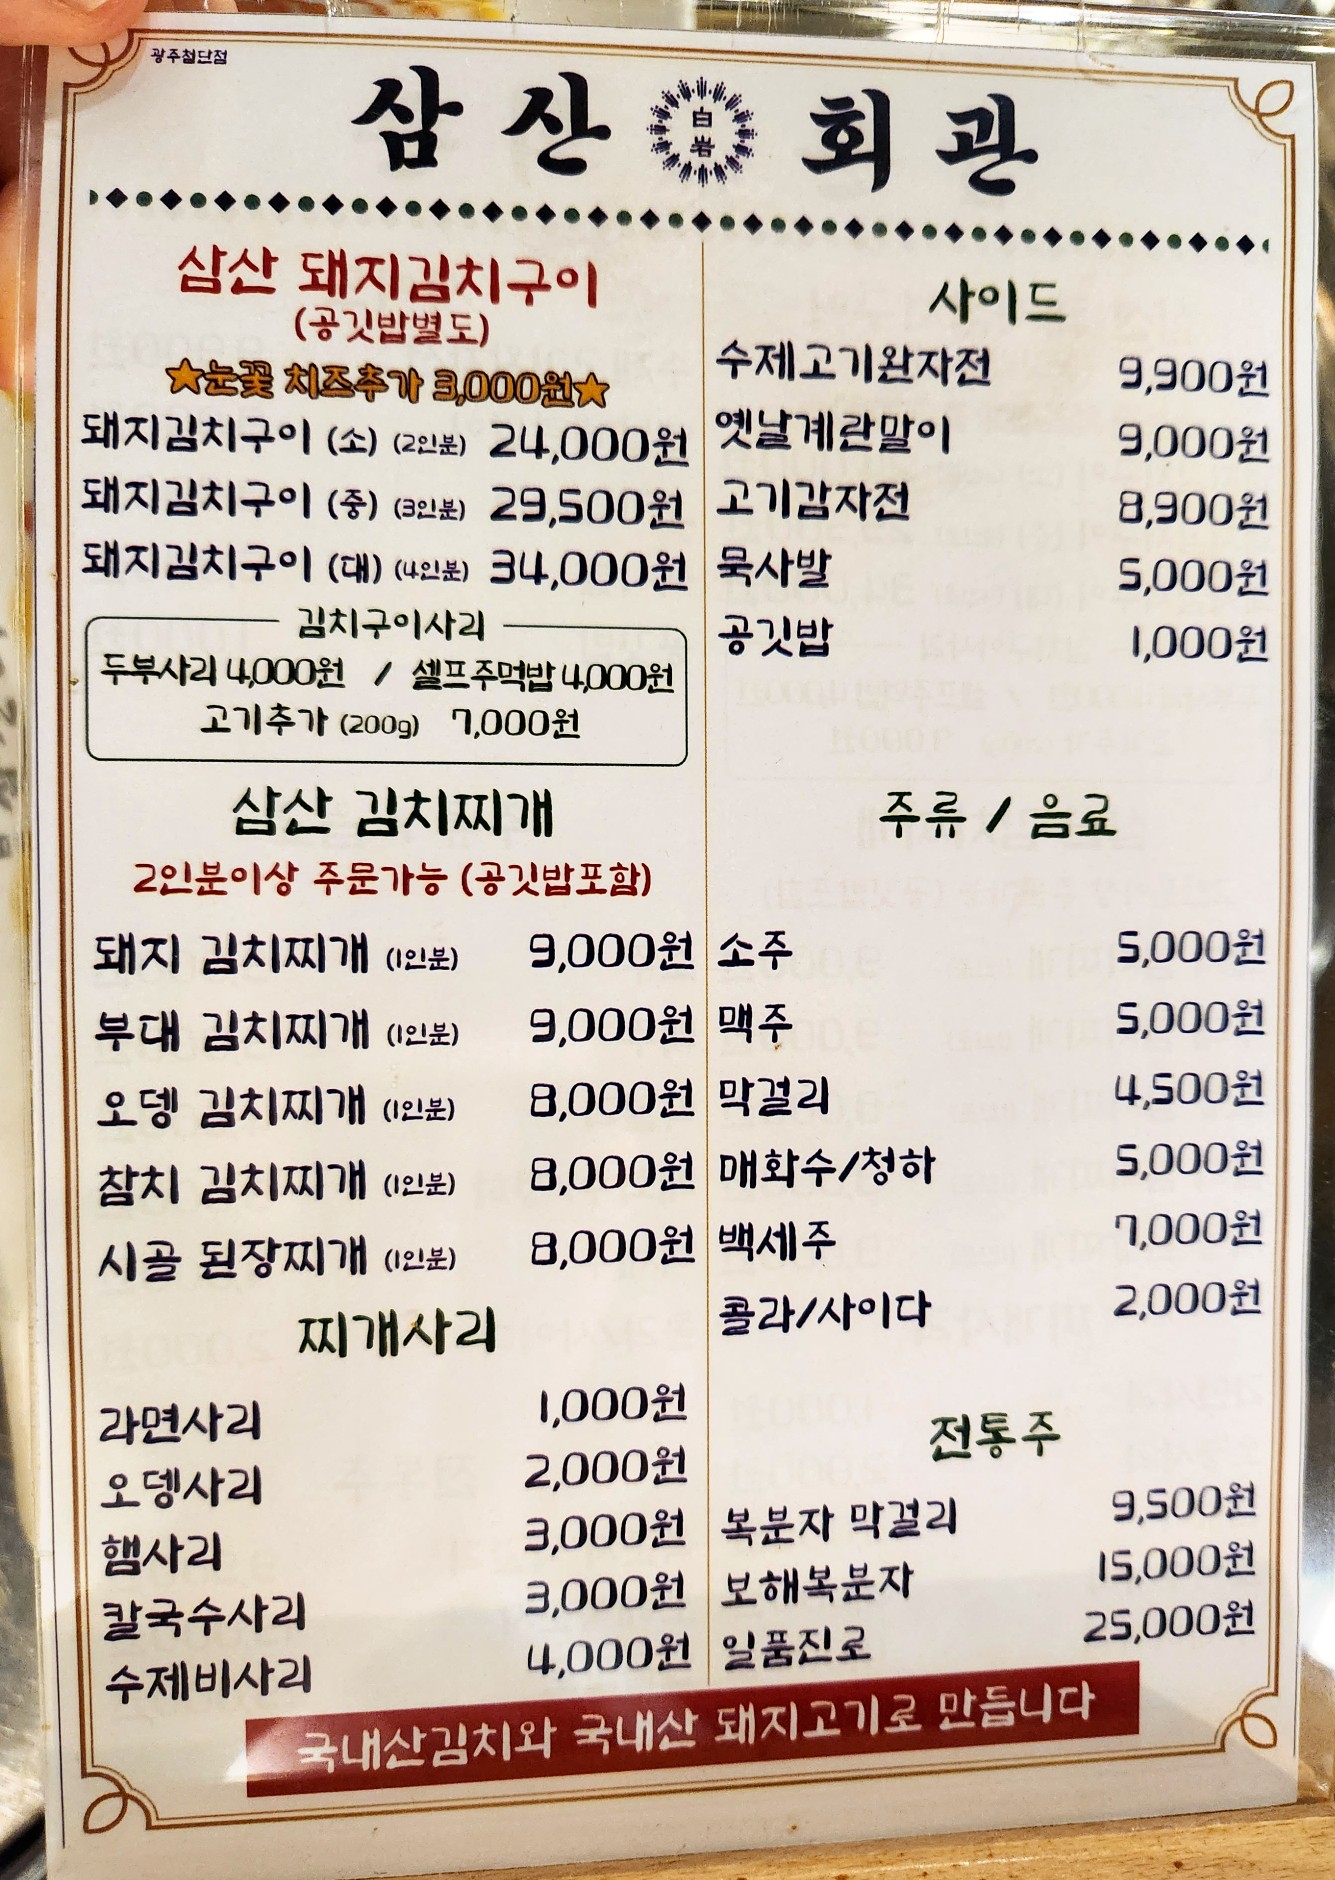 광주첨단점
삼산 白岩 회관
삼산 돼지김치구이
(공깃밥별도)
★눈꽃 치즈추가 3,000원★
돼지김치구이 (소) (2인분) 24,000원
돼지김치구이 (중) (3인분) 29,500원
돼지김치구이 (대) (4인분) 34,000원
김치구이사리
두부사리 4,000원 / 셀프주먹밥 4,000원
고기추가 (200g) 7,000원
삼산 김치찌개
2인분이상 주문가능 (공깃밥포함)
돼지 김치찌개 (1인분) 9,000원
부대 김치찌개 (1인분) 9,000원
오뎅 김치찌개 (1인분) 8,000원
참치 김치찌개 (1인분) 8,000원
시골 된장찌개 (1인분) 8,000원
찌개사리
라면사리 1,000원
오뎅사리 2,000원
햄사리 3,000원
칼국수사리 3,000원
수제비사리 4,000원
사이드
수제고기완자전 9,900원
옛날계란말이 9,000원
고기감자전 8,900원
묵사발 5,000원
공깃밥 1,000원
주류 / 음료
소주 5,000원
맥주 5,000원
막걸리 4,500원
매화수/청하 5,000원
백세주 7,000원
콜라/사이다 2,000원
전통주
복분자 막걸리 9,500원
보해복분자 15,000원
일품진로 25,000원
국내산김치와 국내산 돼지고기로 만듭니다